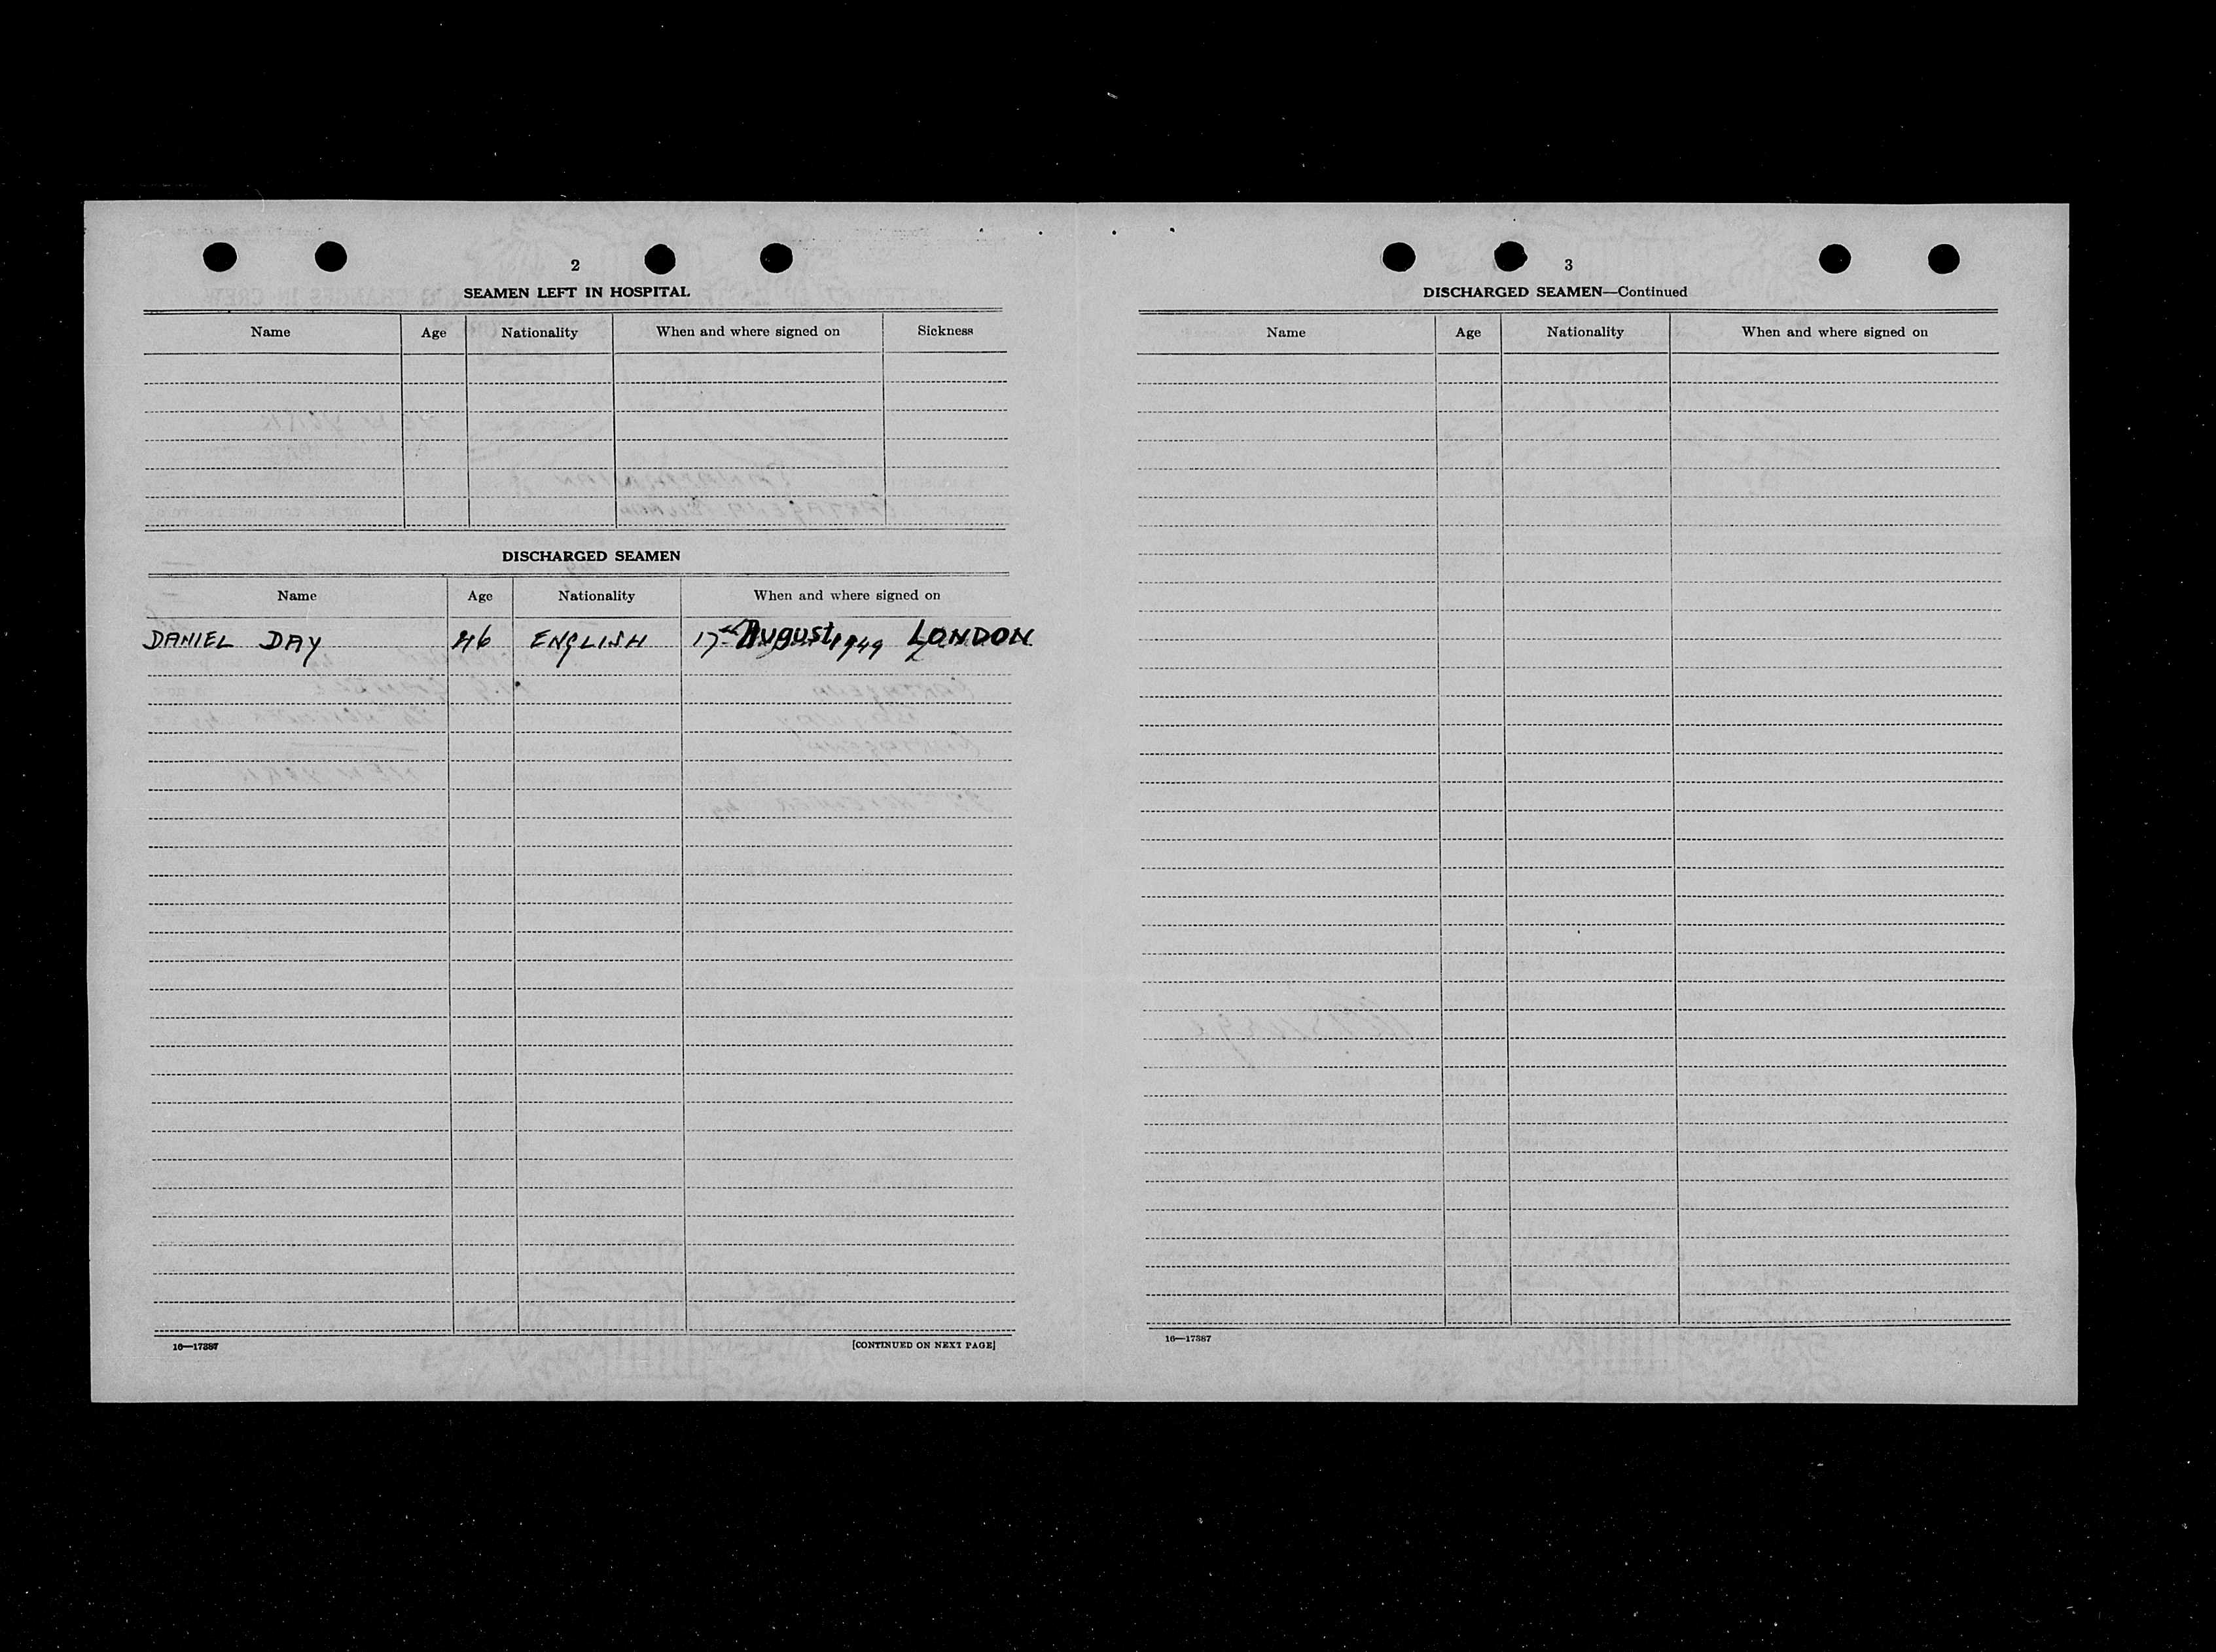 2
SEAMEN LEFT IN HOSPITAL
Name Age Nationality When and where signed on Sickness
DISCHARGED SEAMEN
Name Age Nationality When and where signed on
DANIEL DAY 46 ENGLISH 17th August 1949 LONDON
16—17387
[CONTINUED ON NEXT PAGE]
3
DISCHARGED SEAMEN—Continued
Name Age Nationality When and where signed on
16—17387